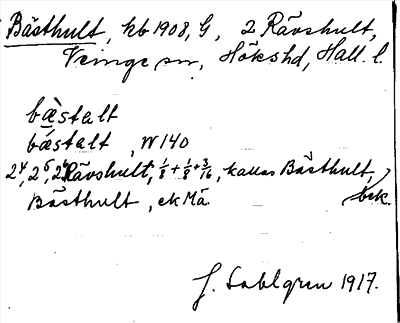 Bästhult, kb 1908, G, 2 Rävshult,
Veinge sn, Hökshd, Hall. l.
bæ̀stalt
bǽstalt, W 140
2⁴, 2⁵, 2⁶ Rävshult, 1/8 + 1/8 + 3/16, kallas Bästhult,
Bästhult, ek Mä bek.
J. Sahlgren 1917.